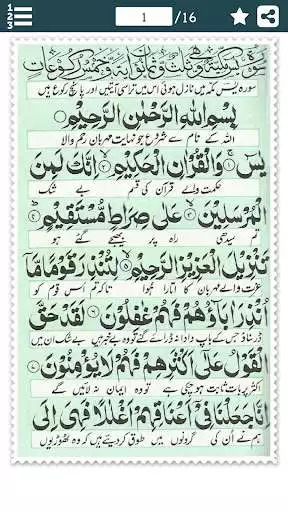 1
2
3
1 /16
سورہ یٰس مکہ میں نازل ہوئی اس میں تراسی آیتیں اور پانچ رکوع ہیں
بِسْمِ اللهِ الرَّحْمٰنِ الرَّحِيْمِ
اللہ کے نام سے شروع جو نہایت مہربان رحم والا
يٰسٓ ۚ وَالْقُرْاٰنِ الْحَكِيْمِ ۙ اِنَّكَ لَمِنَ
حکمت والے قرآن کی قسم بے شک
الْمُرْسَلِيْنَ ۙ عَلٰى صِرَاطٍ مُّسْتَقِيْمٍ ؕ
تم سیدھی راہ پر بھیجے گئے ہو
تَنْزِيْلَ الْعَزِيْزِ الرَّحِيْمِ ۙ لِتُنْذِرَ قَوْمًا مَّاۤ
عزت والے مہربان کا اتارا ہوا تاکہ تم اس قوم کو
اُنْذِرَ اٰبَآؤُهُمْ فَهُمْ غٰفِلُوْنَ ۞ لَقَدْ حَقَّ
ڈر سناؤ جس کے باپ دادا نہ ڈرائے گئے تو وہ بے خبر ہیں بے شک ان میں
الْقَوْلُ عَلٰٓى اَكْثَرِهِمْ فَهُمْ لَا يُؤْمِنُوْنَ ۞
اکثر پر بات ثابت ہو چکی ہے تو وہ ایمان نہ لائیں گے
اِنَّا جَعَلْنَا فِيْٓ اَعْنَاقِهِمْ اَغْلٰلًا فَهِىَ اِلَى
ہم نے ان کی گردنوں میں طوق کر دیئے ہیں کہ وہ ٹھوڑیوں